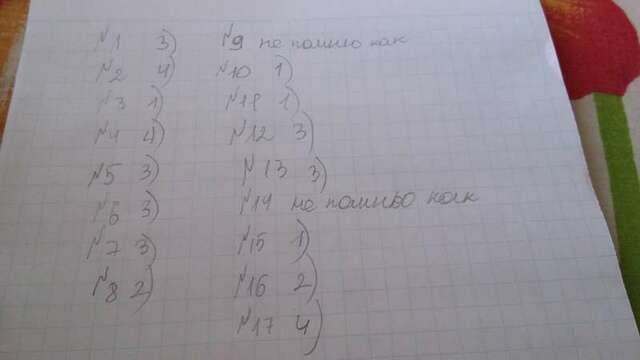 №1 3)
№2 4)
№3 1)
№4 4)
№5 3)
№6 3)
№7 3)
№8 2)
№9 не помню как
№10 1)
№11 1)
№12 3)
№13 3)
№14 не помню как
№15 1)
№16 2)
№17 4)